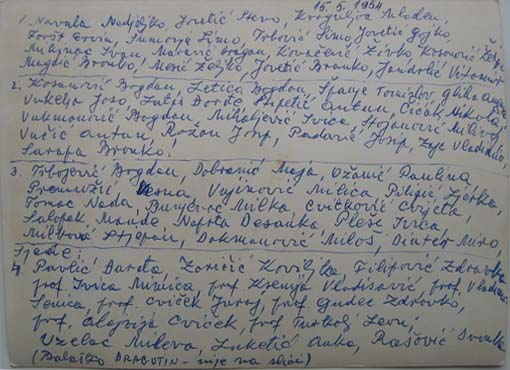 15. 5. 1954
1. Navala Nedjeljko, Jovetić Stevo, Kragulјac Mladen,
Foršt Ervin, Sumonja Simo, Trbović Simo, Jovetić Gojko,
Mukinjac Ivan, Maravić Dragan, Kovačević Živko, Kosanović Željko
Magdić Branko, Mesić Željko, Jovetić Branko, Jandrlić Vitomir
2. Kosanović Bogdan, Zetica Bogdan, Španje Tomislav, Glika
Vukelja Joso, Lutjš Đorđe, Stipetić Antun, Čičak Nikola,
Vukmanović Bogdan, Mihaljević Ivica, Stojanović Milivoj
Vučić Antun, Rožan Josip, Padavić Josip, Zyc Vladimir,
Sarapa Branko!
3. Trbojević Bogdan, Dobranić Maja, Ožanić Paulina
Premužić Vesna, Vujinović Milica, Pilipić Ljerka,
Tomac Nada, Bunjevac Milka, Cvitković Cvijeta,
Salopek Manda, Naprta Desanka, Pleše Ivica,
Milunović Stjepan, Dokmanović Miloš, Dinter Miro,
Sjede:
4. Pavlić Daneta, Zoričić Koviljka, Filipović Zdravka
prof. Ivica Mimica, prof. Ksenija Vladisavić, prof. Vladimir
Senica, prof. Cviček Juraj, prof. Gudec Zdravko,
prof. Alojzija Cviček, prof. Turkalj Leon,
Uzelac Mileva, Luketić Anka, Rašović Dvonka
(Balaško DRAGUTIN - nije na slici)